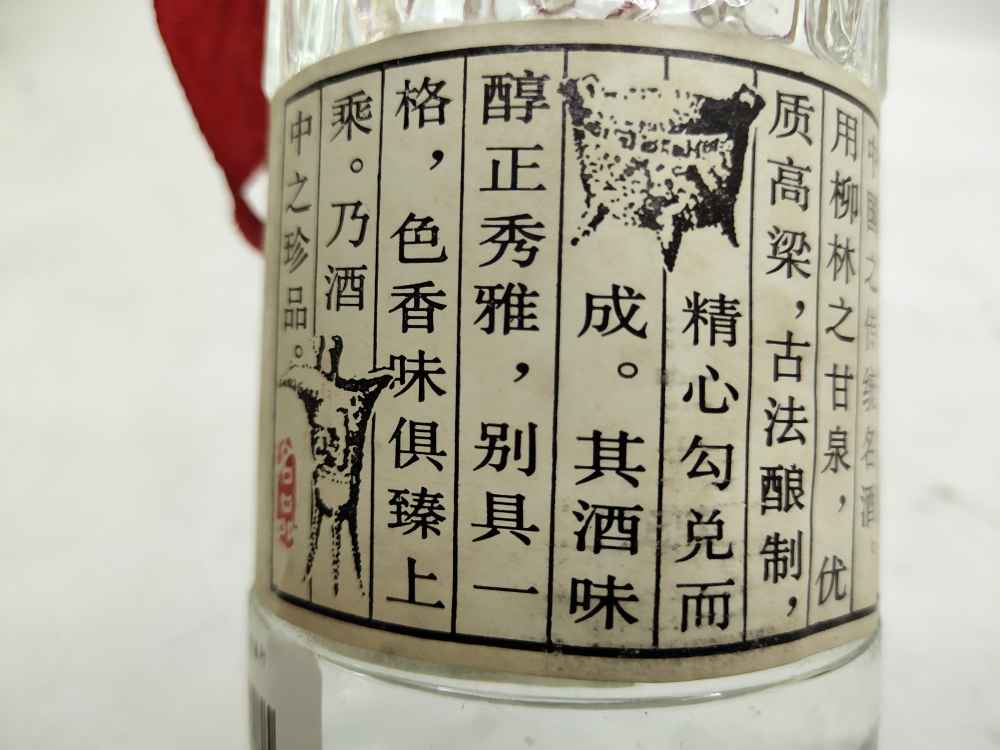 中国之传统名酒。
用柳林之甘泉，优
质高梁，古法酿制，
精心勾兑而
成。其酒味
醇正秀雅，别具一
格，色香味俱臻上
乘。乃酒
中之珍品。